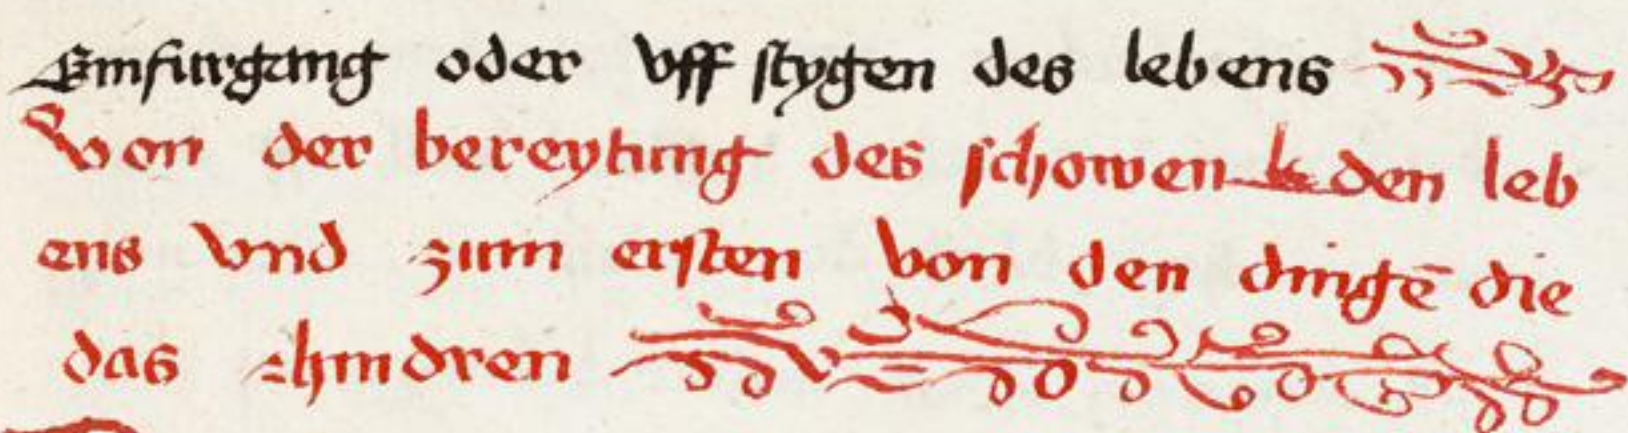 Einfurgang oder vff stygen des lebens
Von der bereytung des schowenden leb
ens vnd zum ersten von den dingē die
das hindren